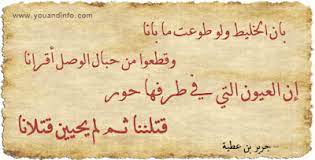 www.youandinfo.com
بان الخليط ولو طوعت ما بانا
وقطعوا من حبال الوصل أقرانا
إن العيون التي في طرفها حور
قتلننا ثم لم يحيين قتلانا
جرير بن عطية